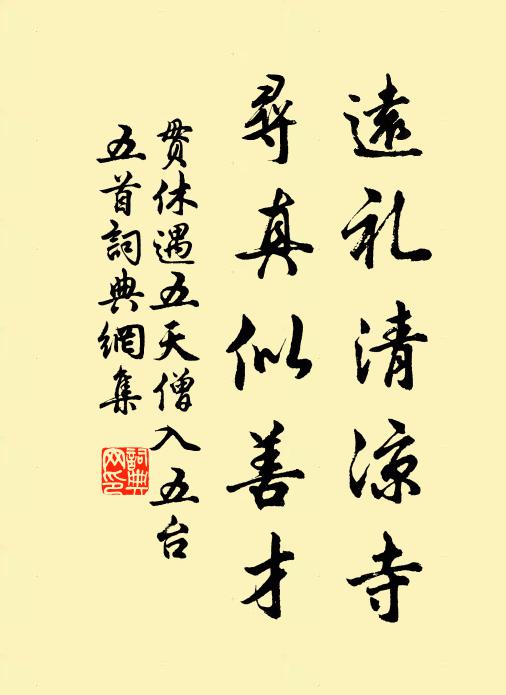 遠礼清凉寺
尋真似善才
貫休遇五天僧入五台
五首詞典網集
詞典網印